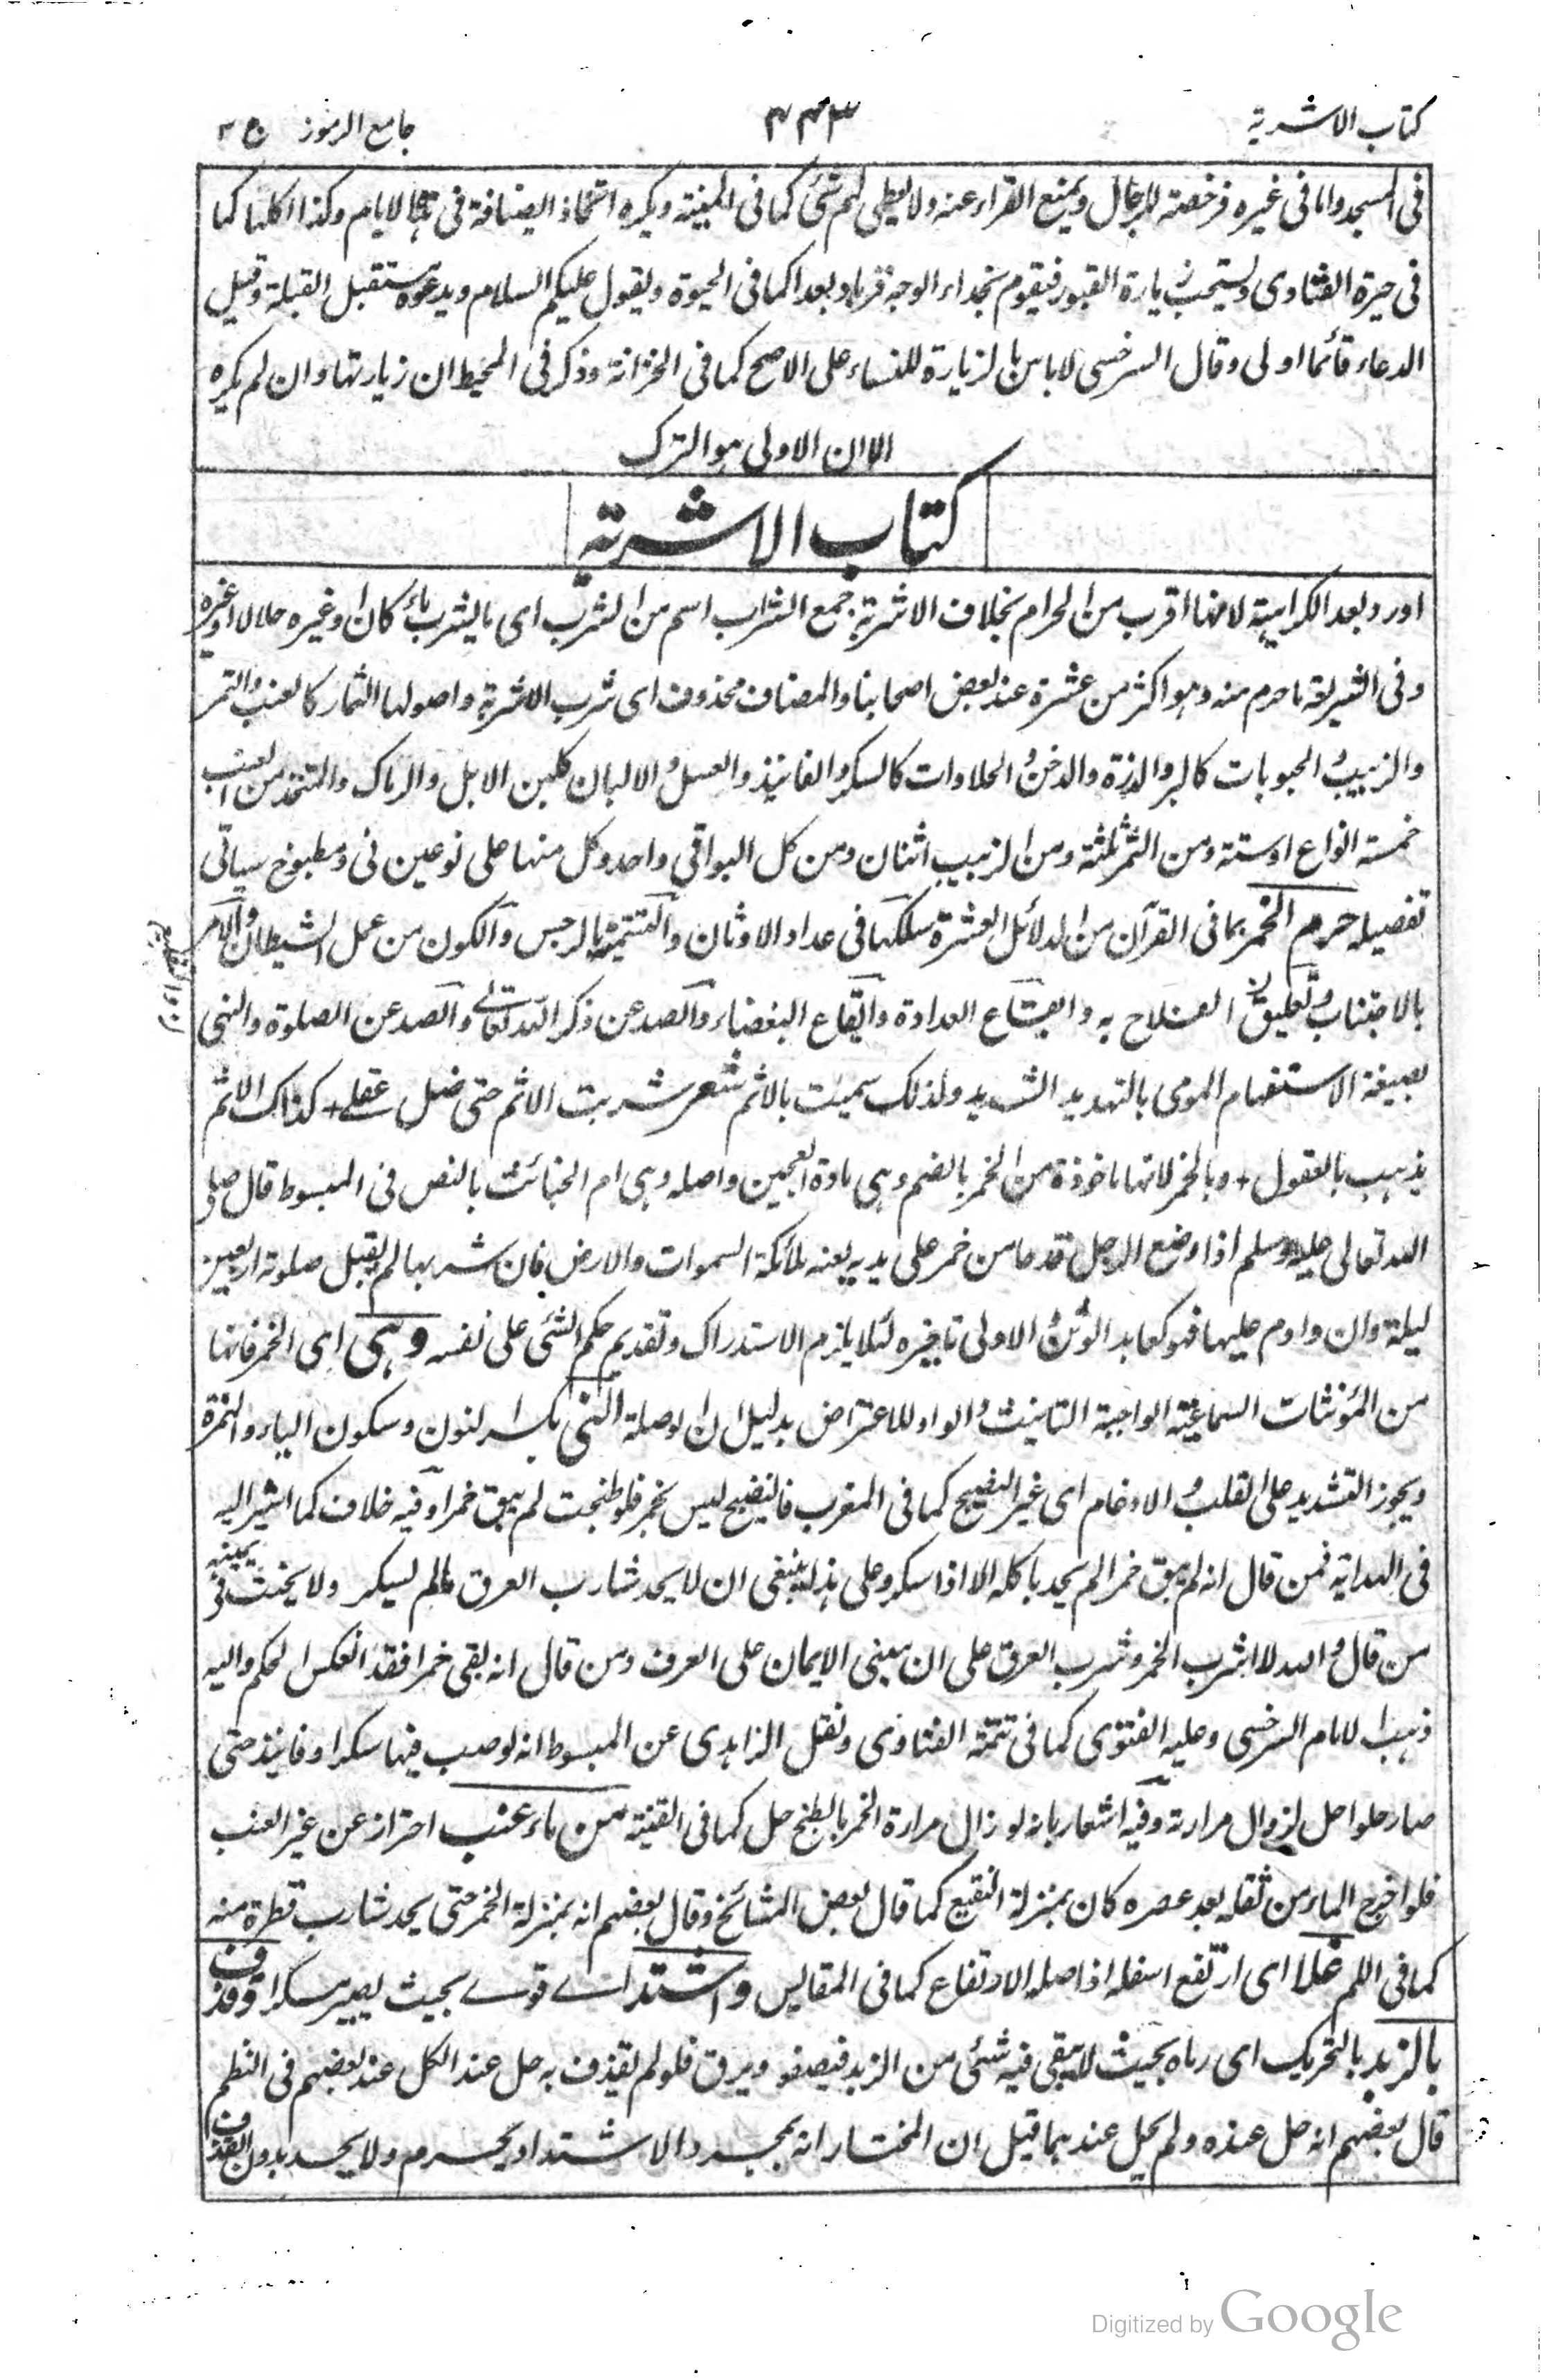 كتاب الاشربة
٤٤٣
جامع الرموز ج ٣
فى المسجد واما فى غيره فرخصة للرجال ويمنع القراء عنه ولا يعطى لهم شئ كما فى المغنية ويكره اتخاذ الضيافة فى هذه الايام وكذا اكلها كما
فى حيرة الفتاوى ويستحب زيارة القبور فيقوم بحذاء الوجه قربا وبعدا كما فى الحيوة ويقول عليكم السلام ويدعوه مستقبل القبلة وقيل
الدعاء قائما اولى وقال السرخسى لاباس بالزيارة للنساء على الاصح كما فى الخزانة وذكر فى المحيط ان زيارتها وان لم يكره
الا ان الاولى هو الترك
كتاب الاشربة
اورد بعد الكراهية لانها اقرب من الحرام بخلاف الاشربة جمع الشراب اسم من الشرب اى ما يشرب ماء كان او غيره حلالا او غيره
وفى الشريعة ما حرم منه وهو اكثر من عشرة عند بعض اصحابنا والمضاف محذوف اى شرب الاشربة واصولها الثمار كالعنب والتمر
والزبيب والحبوبات كالبر والذرة والدخن والحلاوات كالسكر والفانيذ والعسل والالبان كلبن الابل والرماك والمتخذ من العنب
خمسة انواع او ستة ومن التمر ثلثة ومن الزبيب اثنان ومن كل البواقى واحد وكل منها على نوعين نى ومطبوخ سياتى
تفصيله حرم الخمر بما فى القرآن من الدلائل العشرة سلكها فى عداد الاوثان والتسمية بالرجس والكون من عمل الشيطان والامر
بالاجتناب وتعليق الفلاح به وايقاع العداوة وايقاع البغضاء والصد عن ذكر الله تعالى والصد عن الصلوة والنهى
بصيغة الاستفهام المومى بالتهديد الشديد ولذلك سميت بالاثم شعر شربت الاثم حتى ضل عقلى + كذاك الاثم
يذهب بالعقول + وبالخمر لانها ماخوذة من الخمر بالضم وهى مادة العجين واصله وهى ام الخبائث بالنص فى المبسوط قال صلى
الله تعالى عليه وسلم اذا وضع الرجل قدحا من خمر على يديه يعنه ملائكة السموات والارض فان شربها لم يقبل صلوته اربعين
ليلة وان داوم عليها فهو كعابد الوثن والاولى تاخيره لئلا يلزم الاستدراك وتقديم حكم الشئ على نفسه وهى اى الخمر فانها
من المؤنثات السماعية الواجبة التانيث والواو للاعتراض بدليل ان الوصلة النى بكسر النون وسكون الياء والهمزة
ويجوز التشديد على القلب والادغام اى غير النضيج كما فى المغرب فالنضيج ليس بخمر فلو طبخت لم يبق خمرا وفيه خلاف كما اشير اليه
فى الهداية فمن قال انه لم يبق خمرا لم يحد باكله الا اذا سكر وعلى هذا ينبغى ان لا يحد شارب العرق مالم يسكر ولا يحنث فى يمينه
من قال والله لا اشرب الخمر وشرب العرق على ان مبنى الايمان على العرف ومن قال انه بقى خمرا فقد انعكس الحكم واليه
ذهب الامام السرخسى وعليه الفتوى كما فى تتمة الفتاوى ونقل الزاهدى عن المبسوط انه لو صب فيها سكرا وفانيذ حتى
صار حلوا حل لزوال مرارته وفيه اشعار بانه لو زال مرارة الخمر بالطبخ حل كما فى القنية من ماء عنب احتراز عن غير العنب
فلو اخرج الماء من ثفله بعد عصره كان بمنزلة النقيع كما قال بعض المشائخ وقال بعضهم انه بمنزلة الخمر حتى يحد شارب قطرة منه
كما فى اللم غلا اى ارتفع اسفله اذ اصله الارتفاع كما فى المقاليس واشتد اى قوى بحيث يصير مسكرا وقذف
بالزبد بالتحريك اى رماه بحيث لا يبقى فيه شئ من الزبد فيصفو ويرق فلو لم يقذف به حل عند الكل عند بعضهم فى النظم
قال بعضهم انه حل عنده ولم يحل عندهما قيل ان المختار انه بمجرد الاشتداد يحرم ولا يحد بدون القذف
Digitized by Google